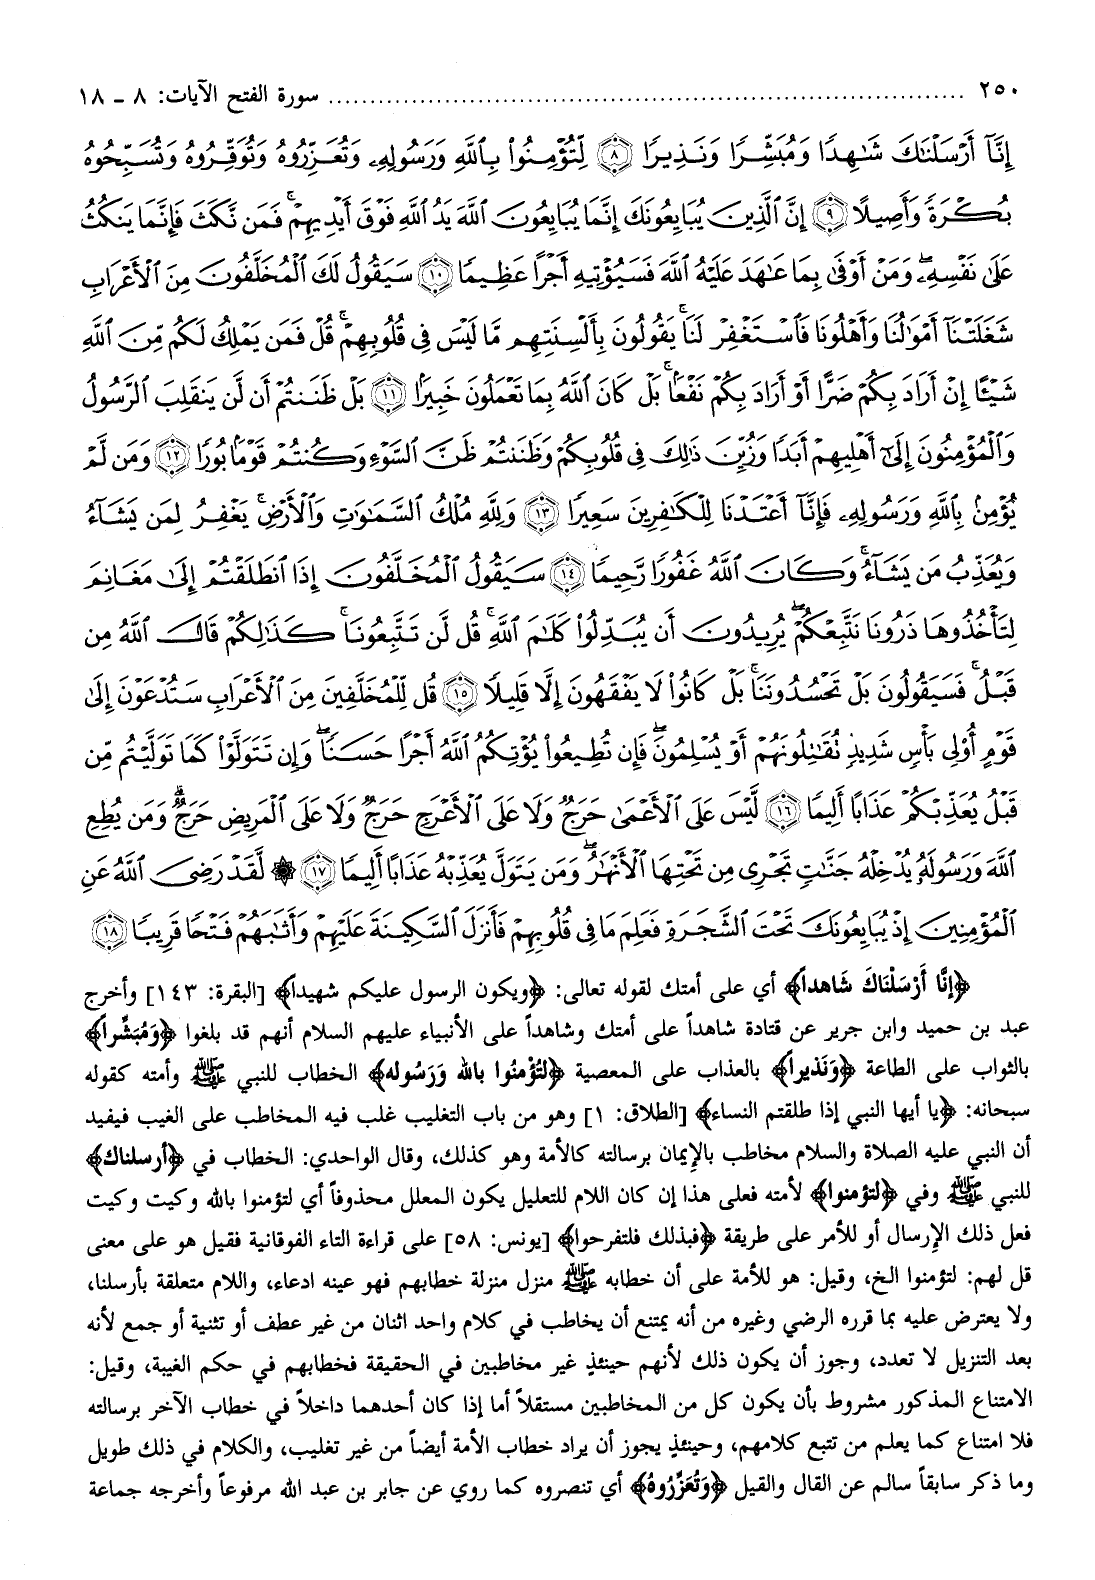 ٢٥٠ ........................ سورة الفتح الآيات: ٨ - ١٨
إِنَّآ أَرْسَلْنَٰكَ شَٰهِدًا وَمُبَشِّرًا وَنَذِيرًا ٨ لِّتُؤْمِنُوا۟ بِٱللَّهِ وَرَسُولِهِۦ وَتُعَزِّرُوهُ وَتُوَقِّرُوهُ وَتُسَبِّحُوهُ
بُكْرَةً وَأَصِيلًا ٩ إِنَّ ٱلَّذِينَ يُبَايِعُونَكَ إِنَّمَا يُبَايِعُونَ ٱللَّهَ يَدُ ٱللَّهِ فَوْقَ أَيْدِيهِمْ ۚ فَمَن نَّكَثَ فَإِنَّمَا يَنكُثُ
عَلَىٰ نَفْسِهِۦ ۖ وَمَنْ أَوْفَىٰ بِمَا عَٰهَدَ عَلَيْهُ ٱللَّهَ فَسَيُؤْتِيهِ أَجْرًا عَظِيمًا ١٠ سَيَقُولُ لَكَ ٱلْمُخَلَّفُونَ مِنَ ٱلْأَعْرَابِ
شَغَلَتْنَآ أَمْوَٰلُنَا وَأَهْلُونَا فَٱسْتَغْفِرْ لَنَا ۚ يَقُولُونَ بِأَلْسِنَتِهِم مَّا لَيْسَ فِى قُلُوبِهِمْ ۚ قُلْ فَمَن يَمْلِكُ لَكُم مِّنَ ٱللَّهِ
شَيْـًٔا إِنْ أَرَادَ بِكُمْ ضَرًّا أَوْ أَرَادَ بِكُمْ نَفْعًۢا ۚ بَلْ كَانَ ٱللَّهُ بِمَا تَعْمَلُونَ خَبِيرًۢا ١١ بَلْ ظَنَنتُمْ أَن لَّن يَنقَلِبَ ٱلرَّسُولُ
وَٱلْمُؤْمِنُونَ إِلَىٰٓ أَهْلِيهِمْ أَبَدًا وَزُيِّنَ ذَٰلِكَ فِى قُلُوبِكُمْ وَظَنَنتُمْ ظَنَّ ٱلسَّوْءِ وَكُنتُمْ قَوْمًۢا بُورًا ١٢ وَمَن لَّمْ
يُؤْمِنۢ بِٱللَّهِ وَرَسُولِهِۦ فَإِنَّآ أَعْتَدْنَا لِلْكَٰفِرِينَ سَعِيرًا ١٣ وَلِلَّهِ مُلْكُ ٱلسَّمَٰوَٰتِ وَٱلْأَرْضِ ۚ يَغْفِرُ لِمَن يَشَآءُ
وَيُعَذِّبُ مَن يَشَآءُ ۚ وَكَانَ ٱللَّهُ غَفُورًا رَّحِيمًا ١٤ سَيَقُولُ ٱلْمُخَلَّفُونَ إِذَا ٱنطَلَقْتُمْ إِلَىٰ مَغَانِمَ
لِتَأْخُذُوهَا ذَرُونَا نَتَّبِعْكُمْ ۖ يُرِيدُونَ أَن يُبَدِّلُوا۟ كَلَٰمَ ٱللَّهِ ۚ قُل لَّن تَتَّبِعُونَا ۚ كَذَٰلِكُمْ قَالَ ٱللَّهُ مِن
قَبْلُ ۚ فَسَيَقُولُونَ بَلْ تَحْسُدُونَنَا ۚ بَلْ كَانُوا۟ لَا يَفْقَهُونَ إِلَّا قَلِيلًا ١٥ قُل لِّلْمُخَلَّفِينَ مِنَ ٱلْأَعْرَابِ سَتُدْعَوْنَ إِلَىٰ
قَوْمٍ أُو۟لِى بَأْسٍ شَدِيدٍ تُقَٰتِلُونَهُمْ أَوْ يُسْلِمُونَ ۖ فَإِن تُطِيعُوا۟ يُؤْتِكُمُ ٱللَّهُ أَجْرًا حَسَنًا ۖ وَإِن تَتَوَلَّوْا۟ كَمَا تَوَلَّيْتُم مِّن
قَبْلُ يُعَذِّبْكُمْ عَذَابًا أَلِيمًا ١٦ لَّيْسَ عَلَى ٱلْأَعْمَىٰ حَرَجٌ وَلَا عَلَى ٱلْأَعْرَجِ حَرَجٌ وَلَا عَلَى ٱلْمَرِيضِ حَرَجٌ ۗ وَمَن يُطِعِ
ٱللَّهَ وَرَسُولَهُۥ يُدْخِلْهُ جَنَّٰتٍ تَجْرِى مِن تَحْتِهَا ٱلْأَنْهَٰرُ ۖ وَمَن يَتَوَلَّ يُعَذِّبْهُ عَذَابًا أَلِيمًا ١٧ ۞ لَّقَدْ رَضِىَ ٱللَّهُ عَنِ
ٱلْمُؤْمِنِينَ إِذْ يُبَايِعُونَكَ تَحْتَ ٱلشَّجَرَةِ فَعَلِمَ مَا فِى قُلُوبِهِمْ فَأَنزَلَ ٱلسَّكِينَةَ عَلَيْهِمْ وَأَثَٰبَهُمْ فَتْحًا قَرِيبًا ١٨
﴿إنَّا أَرْسَلْنَاكَ شَاهداً﴾ أي على أمتك لقوله تعالى: ﴿ويكون الرسول عليكم شهيداً﴾ [البقرة: ١٤٣] وأخرج
عبد بن حميد وابن جرير عن قتادة شاهداً على أمتك وشاهداً على الأنبياء عليهم السلام أنهم قد بلغوا ﴿وَمُبَشِّراً﴾
بالثواب على الطاعة ﴿وَنَذيراً﴾ بالعذاب على المعصية ﴿لتُؤْمنُوا بالله وَرَسُوله﴾ الخطاب للنبي ﷺ وأمته كقوله
سبحانه: ﴿يا أيها النبي إذا طلقتم النساء﴾ [الطلاق: ١] وهو من باب التغليب غلب فيه المخاطب على الغيب فيفيد
أن النبي عليه الصلاة والسلام مخاطب بالإيمان برسالته كالأمة وهو كذلك، وقال الواحدي: الخطاب في ﴿أرسلناك﴾
للنبي ﷺ وفي ﴿لتؤمنوا﴾ لأمته فعلى هذا إن كان اللام للتعليل يكون المعلل محذوفاً أي لتؤمنوا بالله وكيت وكيت
فعل ذلك الإرسال أو للأمر على طريقة ﴿فبذلك فلتفرحوا﴾ [يونس: ٥٨] على قراءة التاء الفوقانية فقيل هو على معنى
قل لهم: لتؤمنوا الخ، وقيل: هو للأمة على أن خطابه ﷺ منزل منزلة خطابهم فهو عينه ادعاء، واللام متعلقة بأرسلنا،
ولا يعترض عليه بما قرره الرضي وغيره من أنه يمتنع أن يخاطب في كلام واحد اثنان من غير عطف أو تثنية أو جمع لأنه
بعد التنزيل لا تعدد، وجوز أن يكون ذلك لأنهم حينئذٍ غير مخاطبين في الحقيقة فخطابهم في حكم الغيبة، وقيل:
الامتناع المذكور مشروط بأن يكون كل من المخاطبين مستقلاً أما إذا كان أحدهما داخلاً في خطاب الآخر برسالته
فلا امتناع كما يعلم من تتبع كلامهم، وحينئذٍ يجوز أن يراد خطاب الأمة أيضاً من غير تغليب، والكلام في ذلك طويل
وما ذكر سابقاً سالم عن القال والقيل ﴿وَتُعَزِّرُوهُ﴾ أي تنصروه كما روي عن جابر بن عبد الله مرفوعاً وأخرجه جماعة